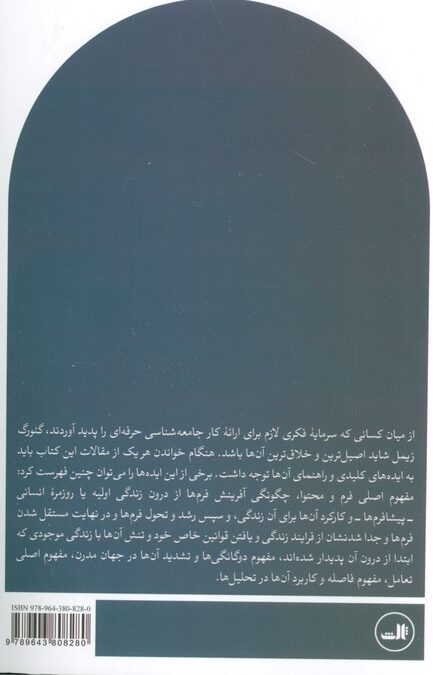 از میان کسانی که سرمایهٔ فکری لازم برای ارائهٔ کار جامعه‌شناسی حرفه‌ای را پدید آوردند، گئورگ
زیمل شاید اصیل‌ترین و خلاق‌ترین آن‌ها باشد. هنگام خواندن هر یک از مقالات این کتاب باید
به ایده‌های کلیدی و راهنمای آن‌ها توجه داشت. برخی از این ایده‌ها را می‌توان چنین فهرست کرد:
مفهوم اصلی فرم و محتوا، چگونگی آفرینش فرم‌ها از درون زندگی اولیه یا روزمرهٔ انسانی
ـ پیشافرم‌ها ـ و کارکرد آن‌ها برای آن زندگی، و سپس رشد و تحول فرم‌ها و در نهایت مستقل شدن
فرم‌ها و جدا شدنشان از فرایند زندگی و یافتن قوانین خاص خود و تنش آن‌ها با زندگی موجودی که
ابتدا از درون آن پدیدار شده‌اند، مفهوم دوگانگی‌ها و تشدید آن‌ها در جهان مدرن، مفهوم اصلی
تعامل، مفهوم فاصله و کاربرد آن‌ها در تحلیل‌ها.
ISBN 978-964-380-828-0
9 789643 808280
ثالث